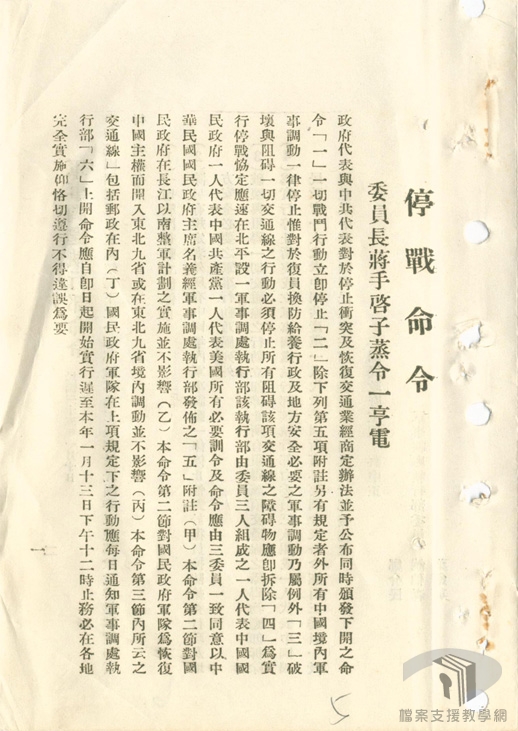 停戰命令
委員長蔣手啓子蒸令一亨電
政府代表與中共代表對於停止衝突及恢復交通業經商定辦法並予公布同時頒發下開之命
令「一」一切戰鬥行動立卽停止「二」除下列第五項附註另有規定者外所有中國境內軍
事調動一律停止惟對於復員換防給養行政及地方安全必要之軍事調動乃屬例外「三」破
壞與阻碍一切交通線之行動必須停止所有阻碍該項交通線之障碍物應卽拆除「四」爲實
行停戰協定應速在北平設一軍事調處執行部該執行部由委員三人組成之一人代表中國國
民政府一人代表中國共產黨一人代表美國所有必要訓令及命令應由三委員一致同意以中
華民國國民政府主席名義經軍事調處執行部發佈之「五」附註（甲）本命令第二節對國
民政府在長江以南整軍計劃之實施並不影響（乙）本命令第二節對國民政府軍隊爲恢復
中國主權而開入東北九省或在東北九省境內調動並不影響（丙）本命令第三節內所云之
交通線」包括郵政在內（丁）國民政府軍隊在上項規定下之行動應每日通知軍事調處執
行部「六」上開命令應自卽日起開始實行遲至本年一月十三日下午十二時止務必在各地
完全實施仰恪切遵行不得違誤爲要
一
5
檔案支援教學網